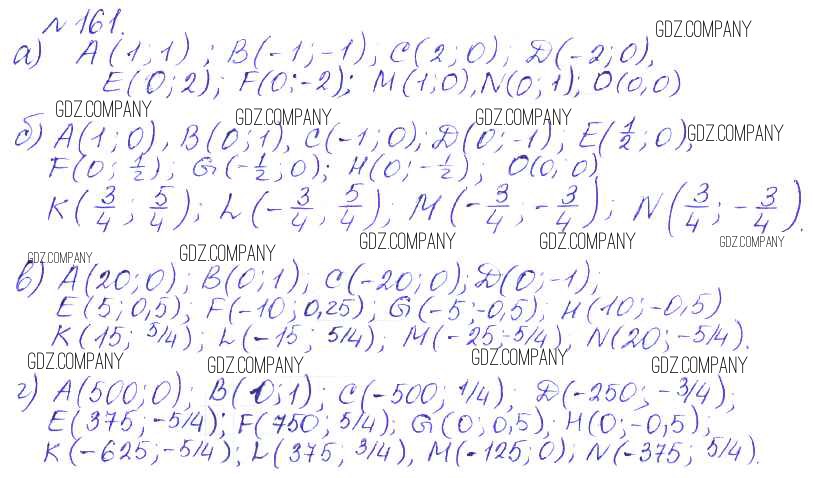 № 161.
GDZ.COMPANY
а) A(1;1); B(-1;-1); C(2;0); D(-2;0),
E(0;2); F(0;-2); M(1;0), N(0;1); O(0,0)
GDZ.COMPANY GDZ.COMPANY GDZ.COMPANY
б) A(1;0), B(0;1), C(-1;0); D(0;-1); E(1/2;0), GDZ.COMPANY
F(0;1/2); G(-1/2;0); H(0;-1/2); O(0,0)
K(3/4;5/4); L(-3/4,5/4); M(-3/4;-3/4); N(3/4;-3/4).
GDZ.COMPANY GDZ.COMPANY GDZ.COMPANY GDZ.COMPANY GDZ.COMPANY
в) A(20;0); B(0;1); C(-20;0); D(0;-1);
E(5;0,5), F(-10;0,25); G(-5;-0,5); H(10;-0,5)
K(15; 5/4); L(-15; 5/4); M(-25;-5/4), N(20;-5/4).
GDZ.COMPANY GDZ.COMPANY GDZ.COMPANY GDZ.COMPANY
г) A(500;0); B(0;1); C(-500; 1/4); D(-250;-3/4);
E(375;-5/4); F(750; 5/4); G(0;0,5); H(0;-0,5);
K(-625;-5/4); L(375; 3/4), M(-125;0); N(-375; 5/4).